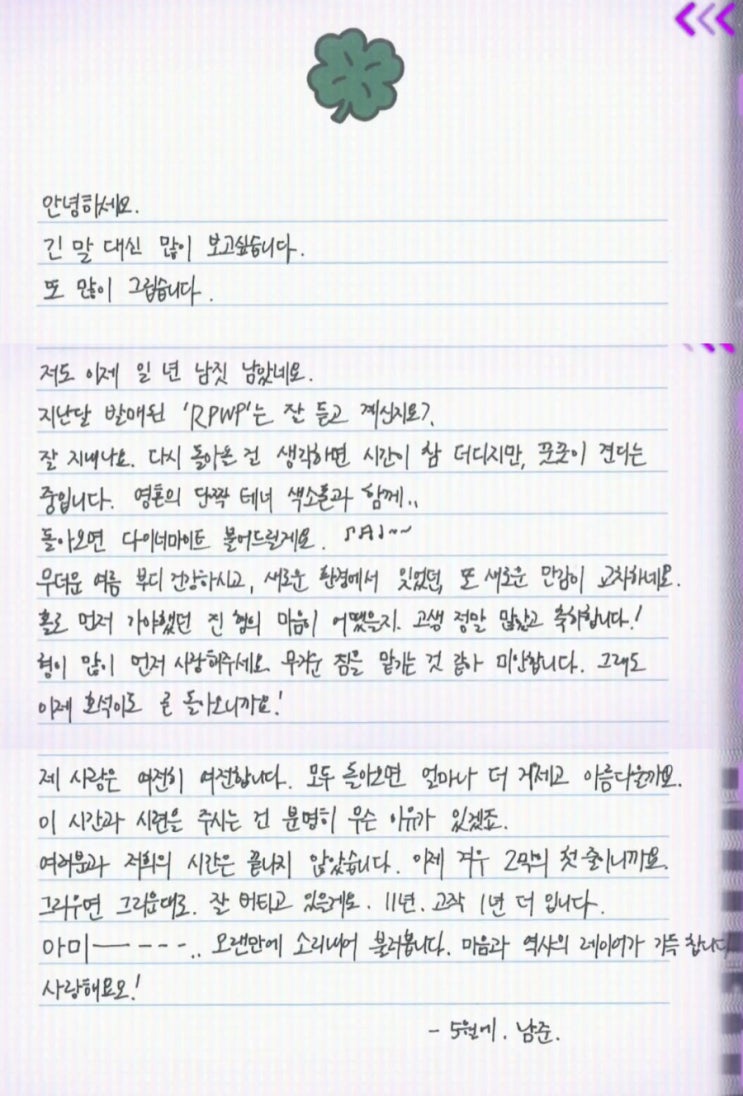 안녕하세요.
긴 말 대신 많이 보고싶습니다.
또 많이 그립습니다.
저도 이제 일 년 남짓 남았네요.
지난달 발매된 'RPWP'는 잘 듣고 계신지요?
잘 지내나요. 다시 돌아온 건 생각하면 시간이 참 더디지만, 꾿꾿이 견디는
중입니다. 영혼의 단짝 테너 색소폰과 함께..
돌아오면 다이너마이트 불어드릴게요. ♪♬♩~~
무더운 여름 부디 건강하시고, 새로운 환경에서 잊었던, 또 새로운 만감이 교차하네요.
홀로 먼저 가야했던 진 형의 마음이 어땠을지. 고생 정말 많았고 축하합니다!
형이 많이 먼저 사랑해주세요. 무거운 짐을 맡기는 것 같아 미안합니다. 그래도
이제 호석이도 곧 돌아오니까요!
제 사랑은 여전히 여전합니다. 모두 돌아오면 얼마나 더 거세고 아름다울까요.
이 시간과 시련을 주시는 건 분명히 무슨 이유가 있겠죠.
여러분과 저희의 시간은 끝나지 않았습니다. 이제 겨우 2막의 첫 줄이니까요.
그리우면 그리운대로. 잘 버티고 있을게요. 11년. 고작 1년 더 입니다.
아미—----.. 오랜만에 소리내어 불러봅니다. 마음과 역사의 레이어가 가득 찹니다
사랑해요오!
- 5월에. 남준.